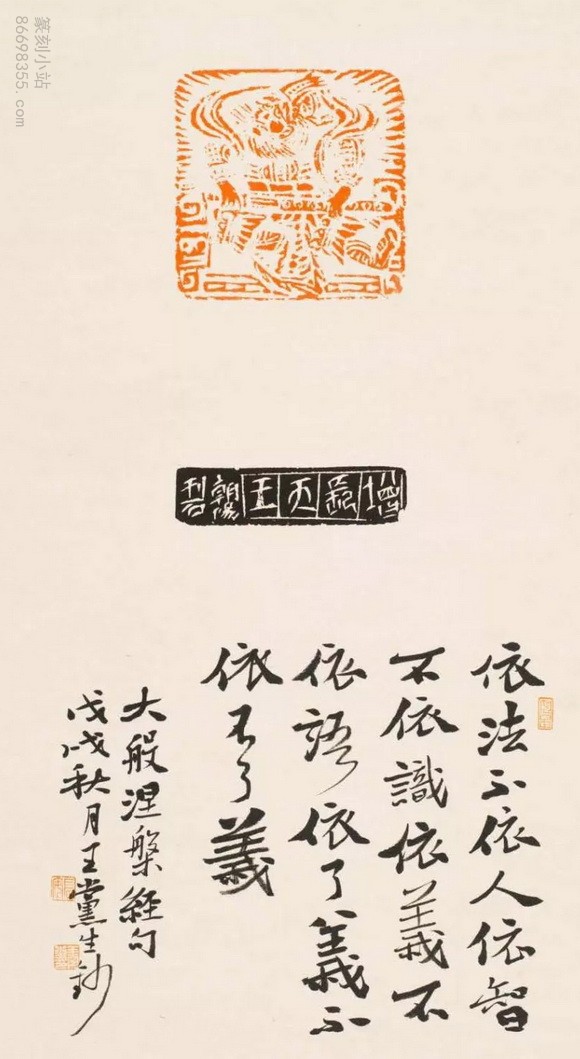 篆刻小站
86698355.com
增長天王
朝陽
刊石
依法不依人依智
不依識依義不
依語依了義不
依不了義
大般涅槃經句
戊戌秋月王黨生鈔